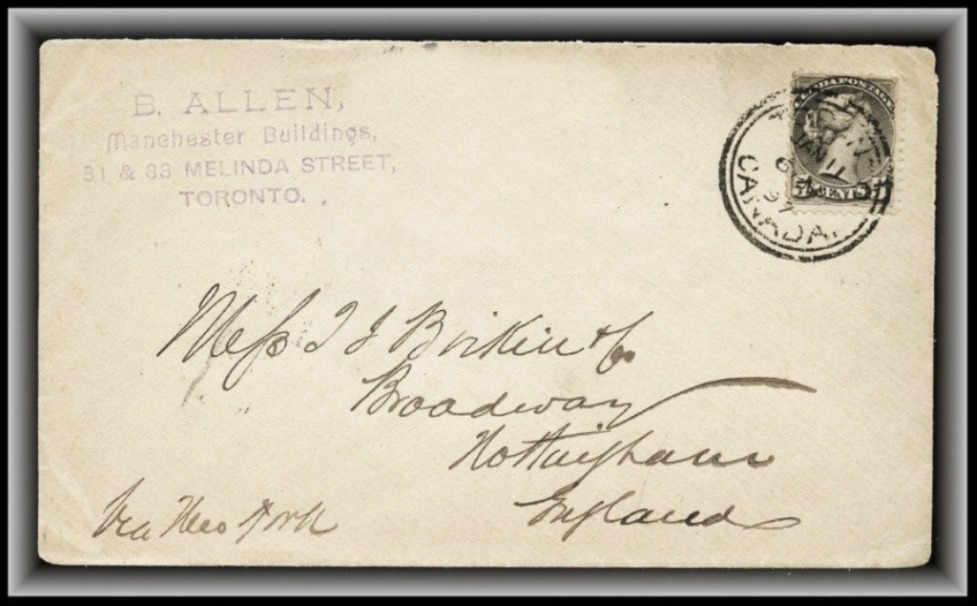 B. ALLEN,
Manchester Buildings,
31 & 33 MELINDA STREET,
TORONTO.
JAN 11
6
97
CANADA.
Mess T I Birkin & Co
Broadway
Nottingham
England
Via New York